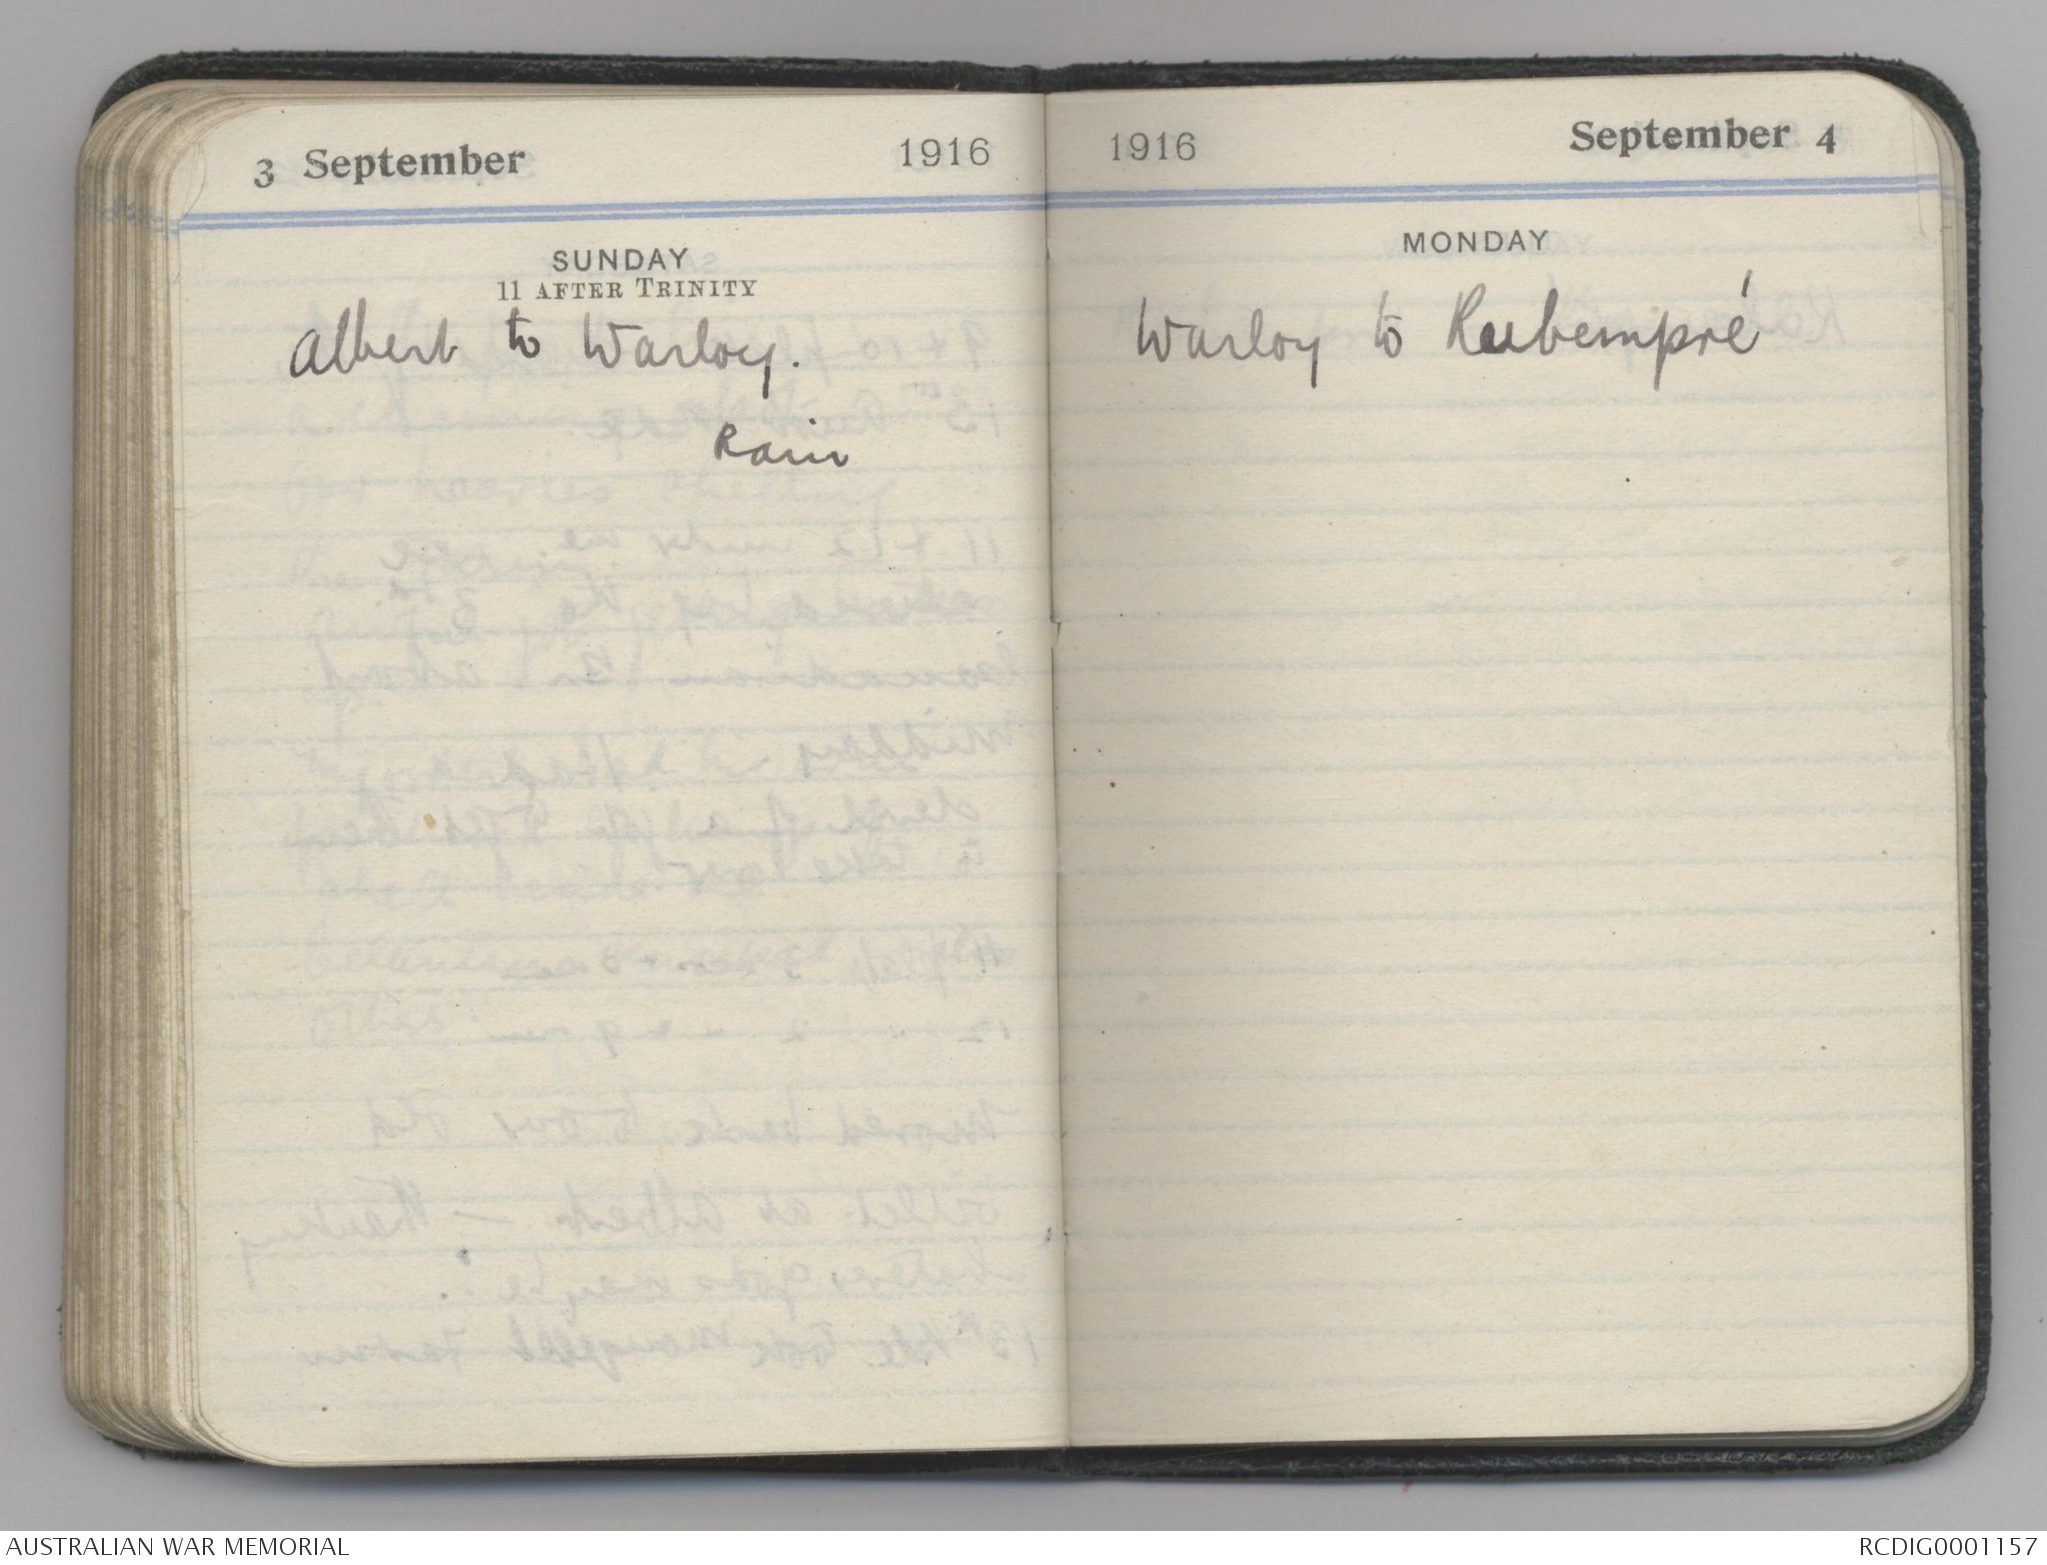 3 September 1916
SUNDAY
11 AFTER TRINITY
Albert to Warloy.
Rain
1916 September 4
MONDAY
Warloy to Rubempré
AUSTRALIAN WAR MEMORIAL
RCDIG0001157